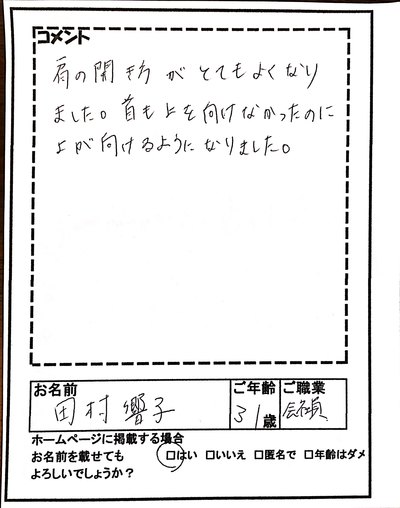 コメント
肩の開き方がとてもよくなり
ました。首も上を向けなかったのに
上が向けるようになりました。
お名前
田村 響子
ご年齢
31歳
ご職業
ホームページに掲載する場合
お名前を載せても □はい □いいえ □匿名で □年齢はダメ
よろしいでしょうか？